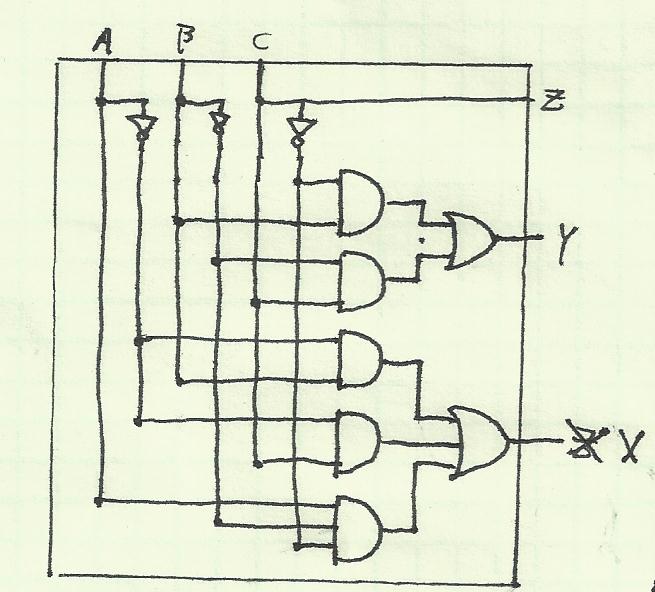 A B C
Z
Y
X